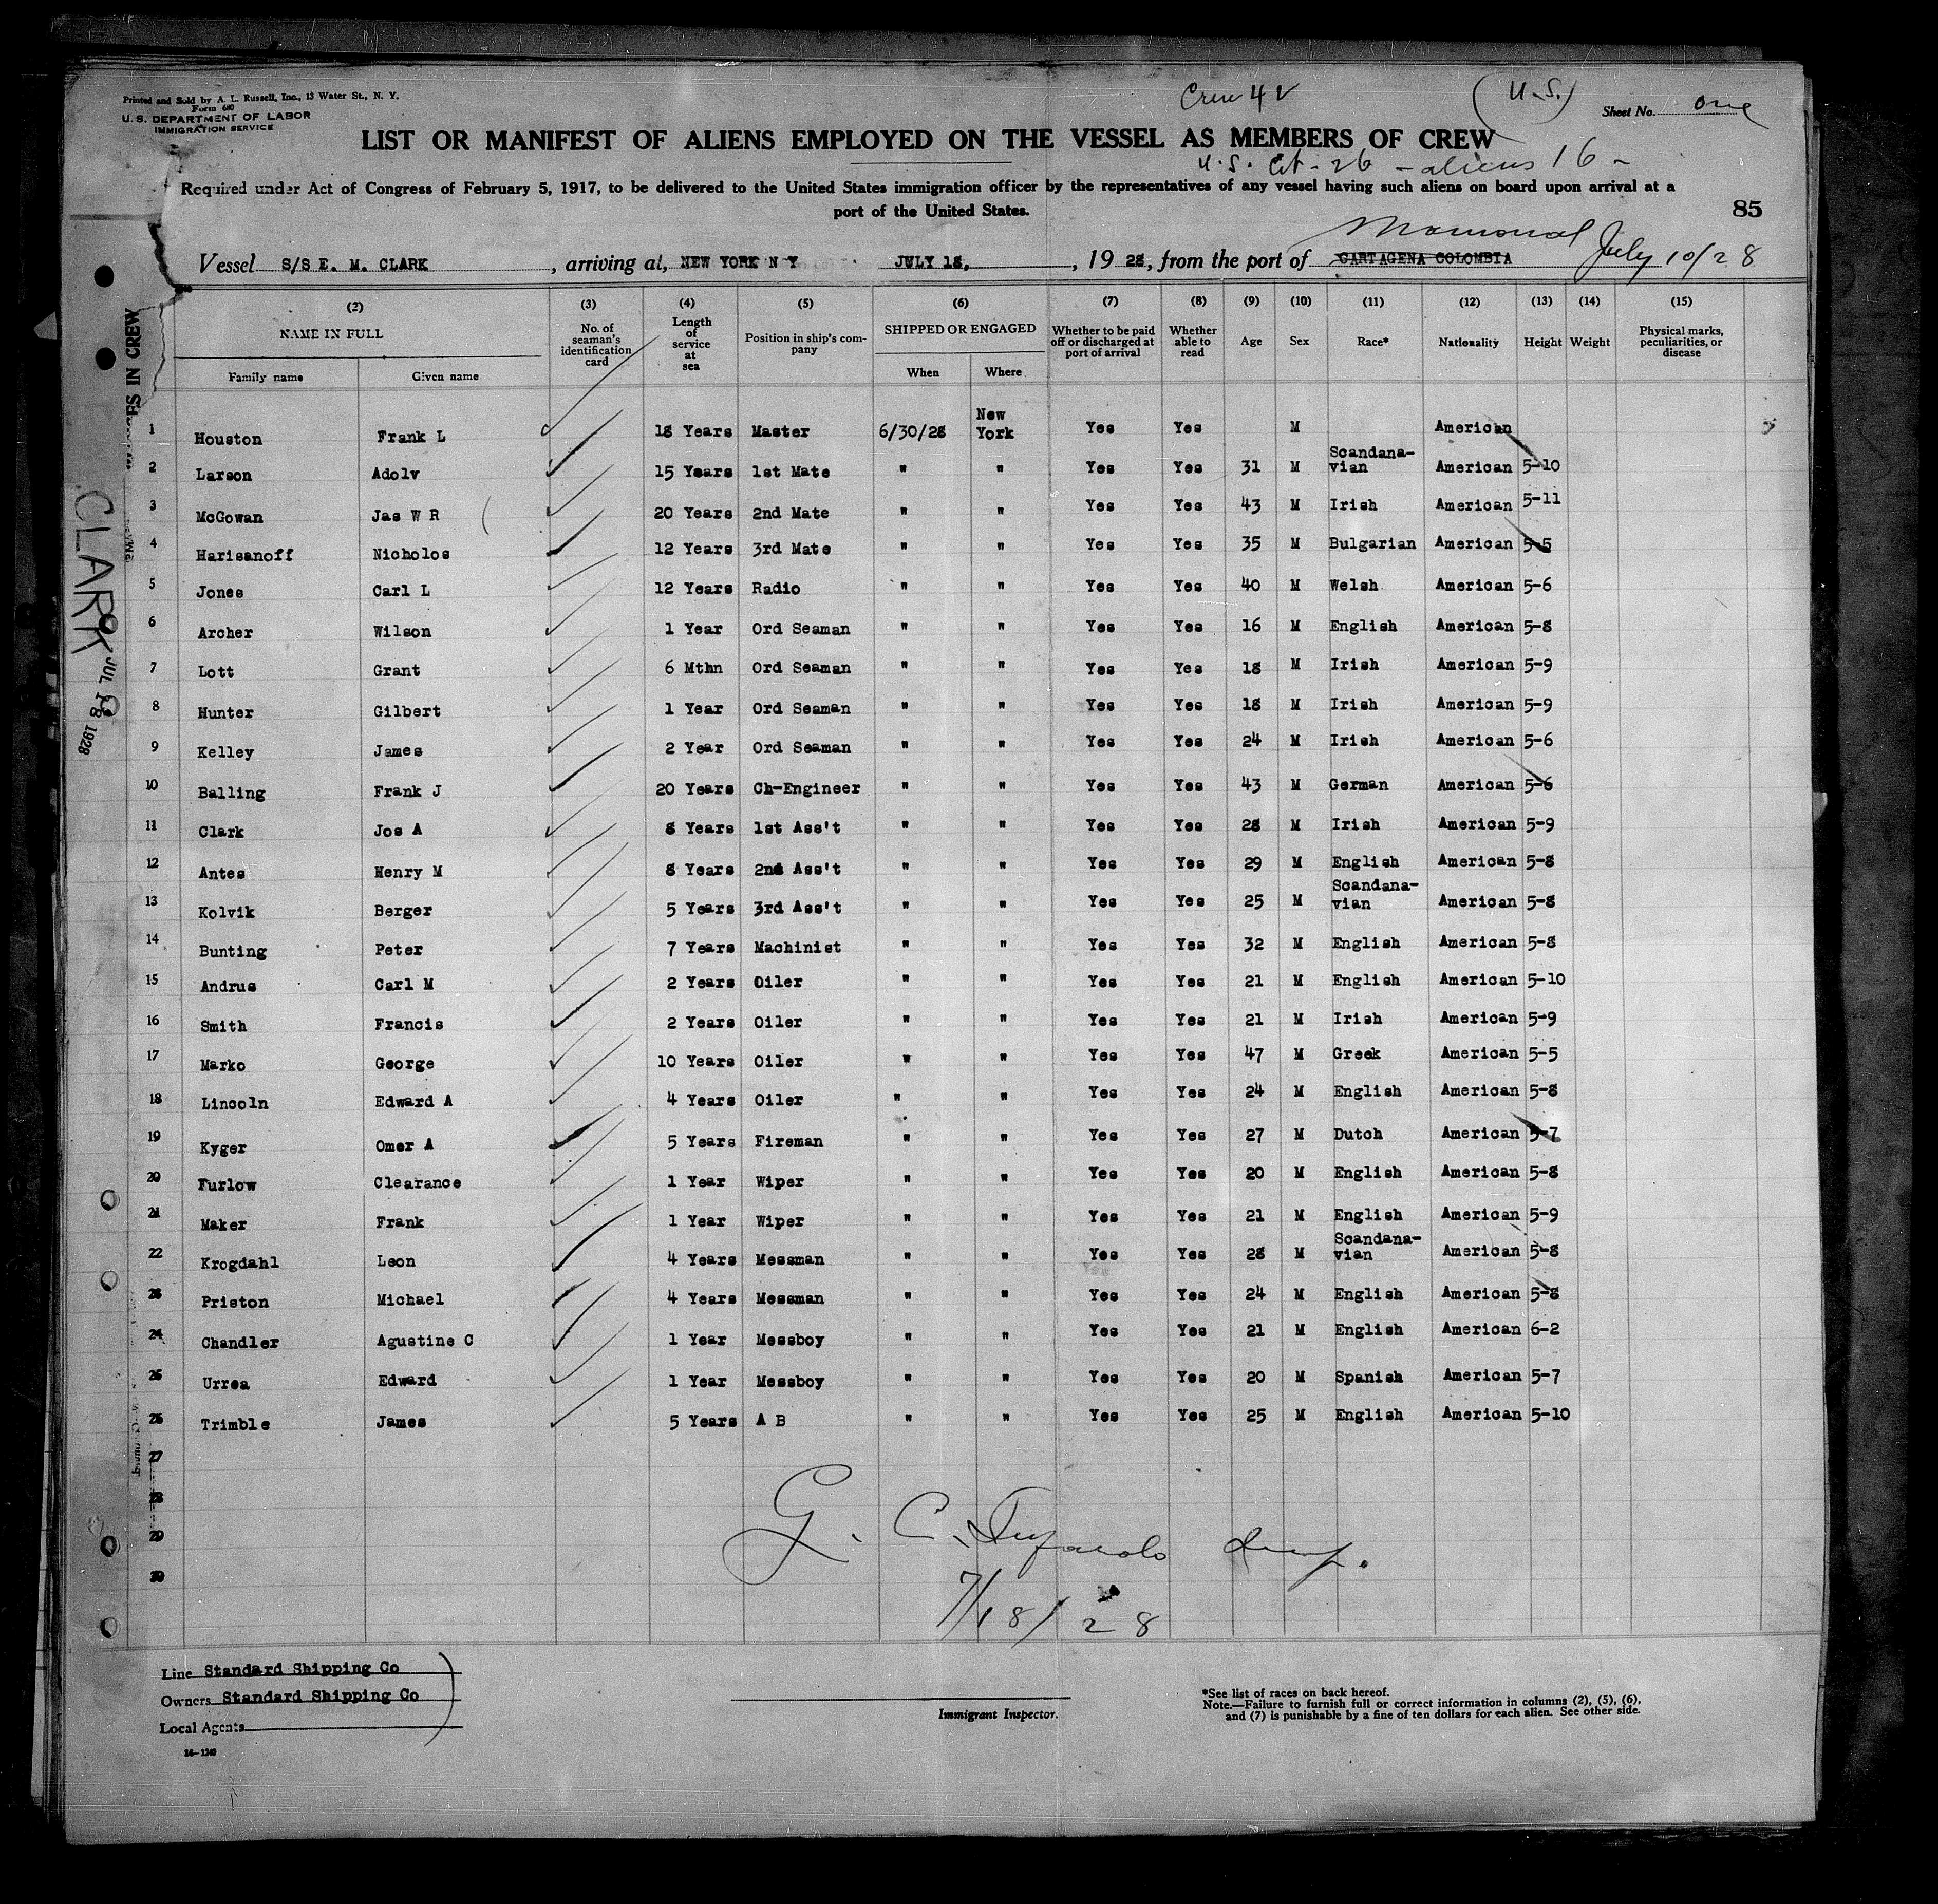 Printed and Sold by A. L. Russell, Inc., 13 Water St., N. Y.
Form 680
U. S. DEPARTMENT OF LABOR
IMMIGRATION SERVICE
Crew 42
(U.S.)
Sheet No. one
LIST OR MANIFEST OF ALIENS EMPLOYED ON THE VESSEL AS MEMBERS OF CREW
U.S. Cit - 26 - aliens 16 -
Required under Act of Congress of February 5, 1917, to be delivered to the United States immigration officer by the representatives of any vessel having such aliens on board upon arrival at a
port of the United States.
85
Vessel S/S E. M. CLARK, arriving at, NEW YORK N Y JULY 18, , 19 28, from the port of CARTAGENA COLOMBIA Mamonal July 10/28
(2) (3) (4) (5) (6) (7) (8) (9) (10) (11) (12) (13) (14) (15)
NAME IN FULL No. of seaman's identification card Length of service at sea Position in ship's company SHIPPED OR ENGAGED Whether to be paid off or discharged at port of arrival Whether able to read Age Sex Race* Nationality Height Weight Physical marks, peculiarities, or disease
Family name Given name When Where
1 Houston Frank L 18 Years Master 6/30/28 New York Yes Yes M American
2 Larson Adolv 15 Years 1st Mate " " Yes Yes 31 M Scandana-vian American 5-10
3 McGowan Jas W R 20 Years 2nd Mate " " Yes Yes 43 M Irish American 5-11
4 Harisanoff Nicholos 12 Years 3rd Mate " " Yes Yes 35 M Bulgarian American 5-5
5 Jones Carl L 12 Years Radio " " Yes Yes 40 M Welsh American 5-6
6 Archer Wilson 1 Year Ord Seaman " " Yes Yes 16 M English American 5-8
7 Lott Grant 6 Mthn Ord Seaman " " Yes Yes 18 M Irish American 5-9
8 Hunter Gilbert 1 Year Ord Seaman " " Yes Yes 18 M Irish American 5-9
9 Kelley James 2 Year Ord Seaman " " Yes Yes 24 M Irish American 5-6
10 Balling Frank J 20 Years Ch-Engineer " " Yes Yes 43 M German American 5-6
11 Clark Jos A 8 Years 1st Ass't " " Yes Yes 28 M Irish American 5-9
12 Antes Henry M 8 Years 2nd Ass't " " Yes Yes 29 M English American 5-8
13 Kolvik Berger 5 Years 3rd Ass't " " Yes Yes 25 M Scandana-vian American 5-8
14 Bunting Peter 7 Years Machinist " " Yes Yes 32 M English American 5-8
15 Andrus Carl M 2 Years Oiler " " Yes Yes 21 M English American 5-10
16 Smith Francis 2 Years Oiler " " Yes Yes 21 M Irish American 5-9
17 Marko George 10 Years Oiler " " Yes Yes 47 M Greek American 5-5
18 Lincoln Edward A 4 Years Oiler " " Yes Yes 24 M English American 5-8
19 Kyger Omer A 5 Years Fireman " " Yes Yes 27 M Dutch American 5-7
20 Furlow Clearance 1 Year Wiper " " Yes Yes 20 M English American 5-8
21 Maker Frank 1 Year Wiper " " Yes Yes 21 M English American 5-9
22 Krogdahl Leon 4 Years Messman " " Yes Yes 28 M Scandana-vian American 5-8
23 Priston Michael 4 Years Messman " " Yes Yes 24 M English American 5-8
24 Chandler Agustine C 1 Year Messboy " " Yes Yes 21 M English American 6-2
25 Urrea Edward 1 Year Messboy " " Yes Yes 20 M Spanish American 5-7
26 Trimble James 5 Years A B " " Yes Yes 25 M English American 5-10
27
28
29
30
G. C.
7/18/28
Line Standard Shipping Co
Owners Standard Shipping Co
Local Agents
14-1240
Immigrant Inspector.
*See list of races on back hereof.
Note.—Failure to furnish full or correct information in columns (2), (5), (6),
and (7) is punishable by a fine of ten dollars for each alien. See other side.
ES IN CREW
CLARK
JUL 18 1928